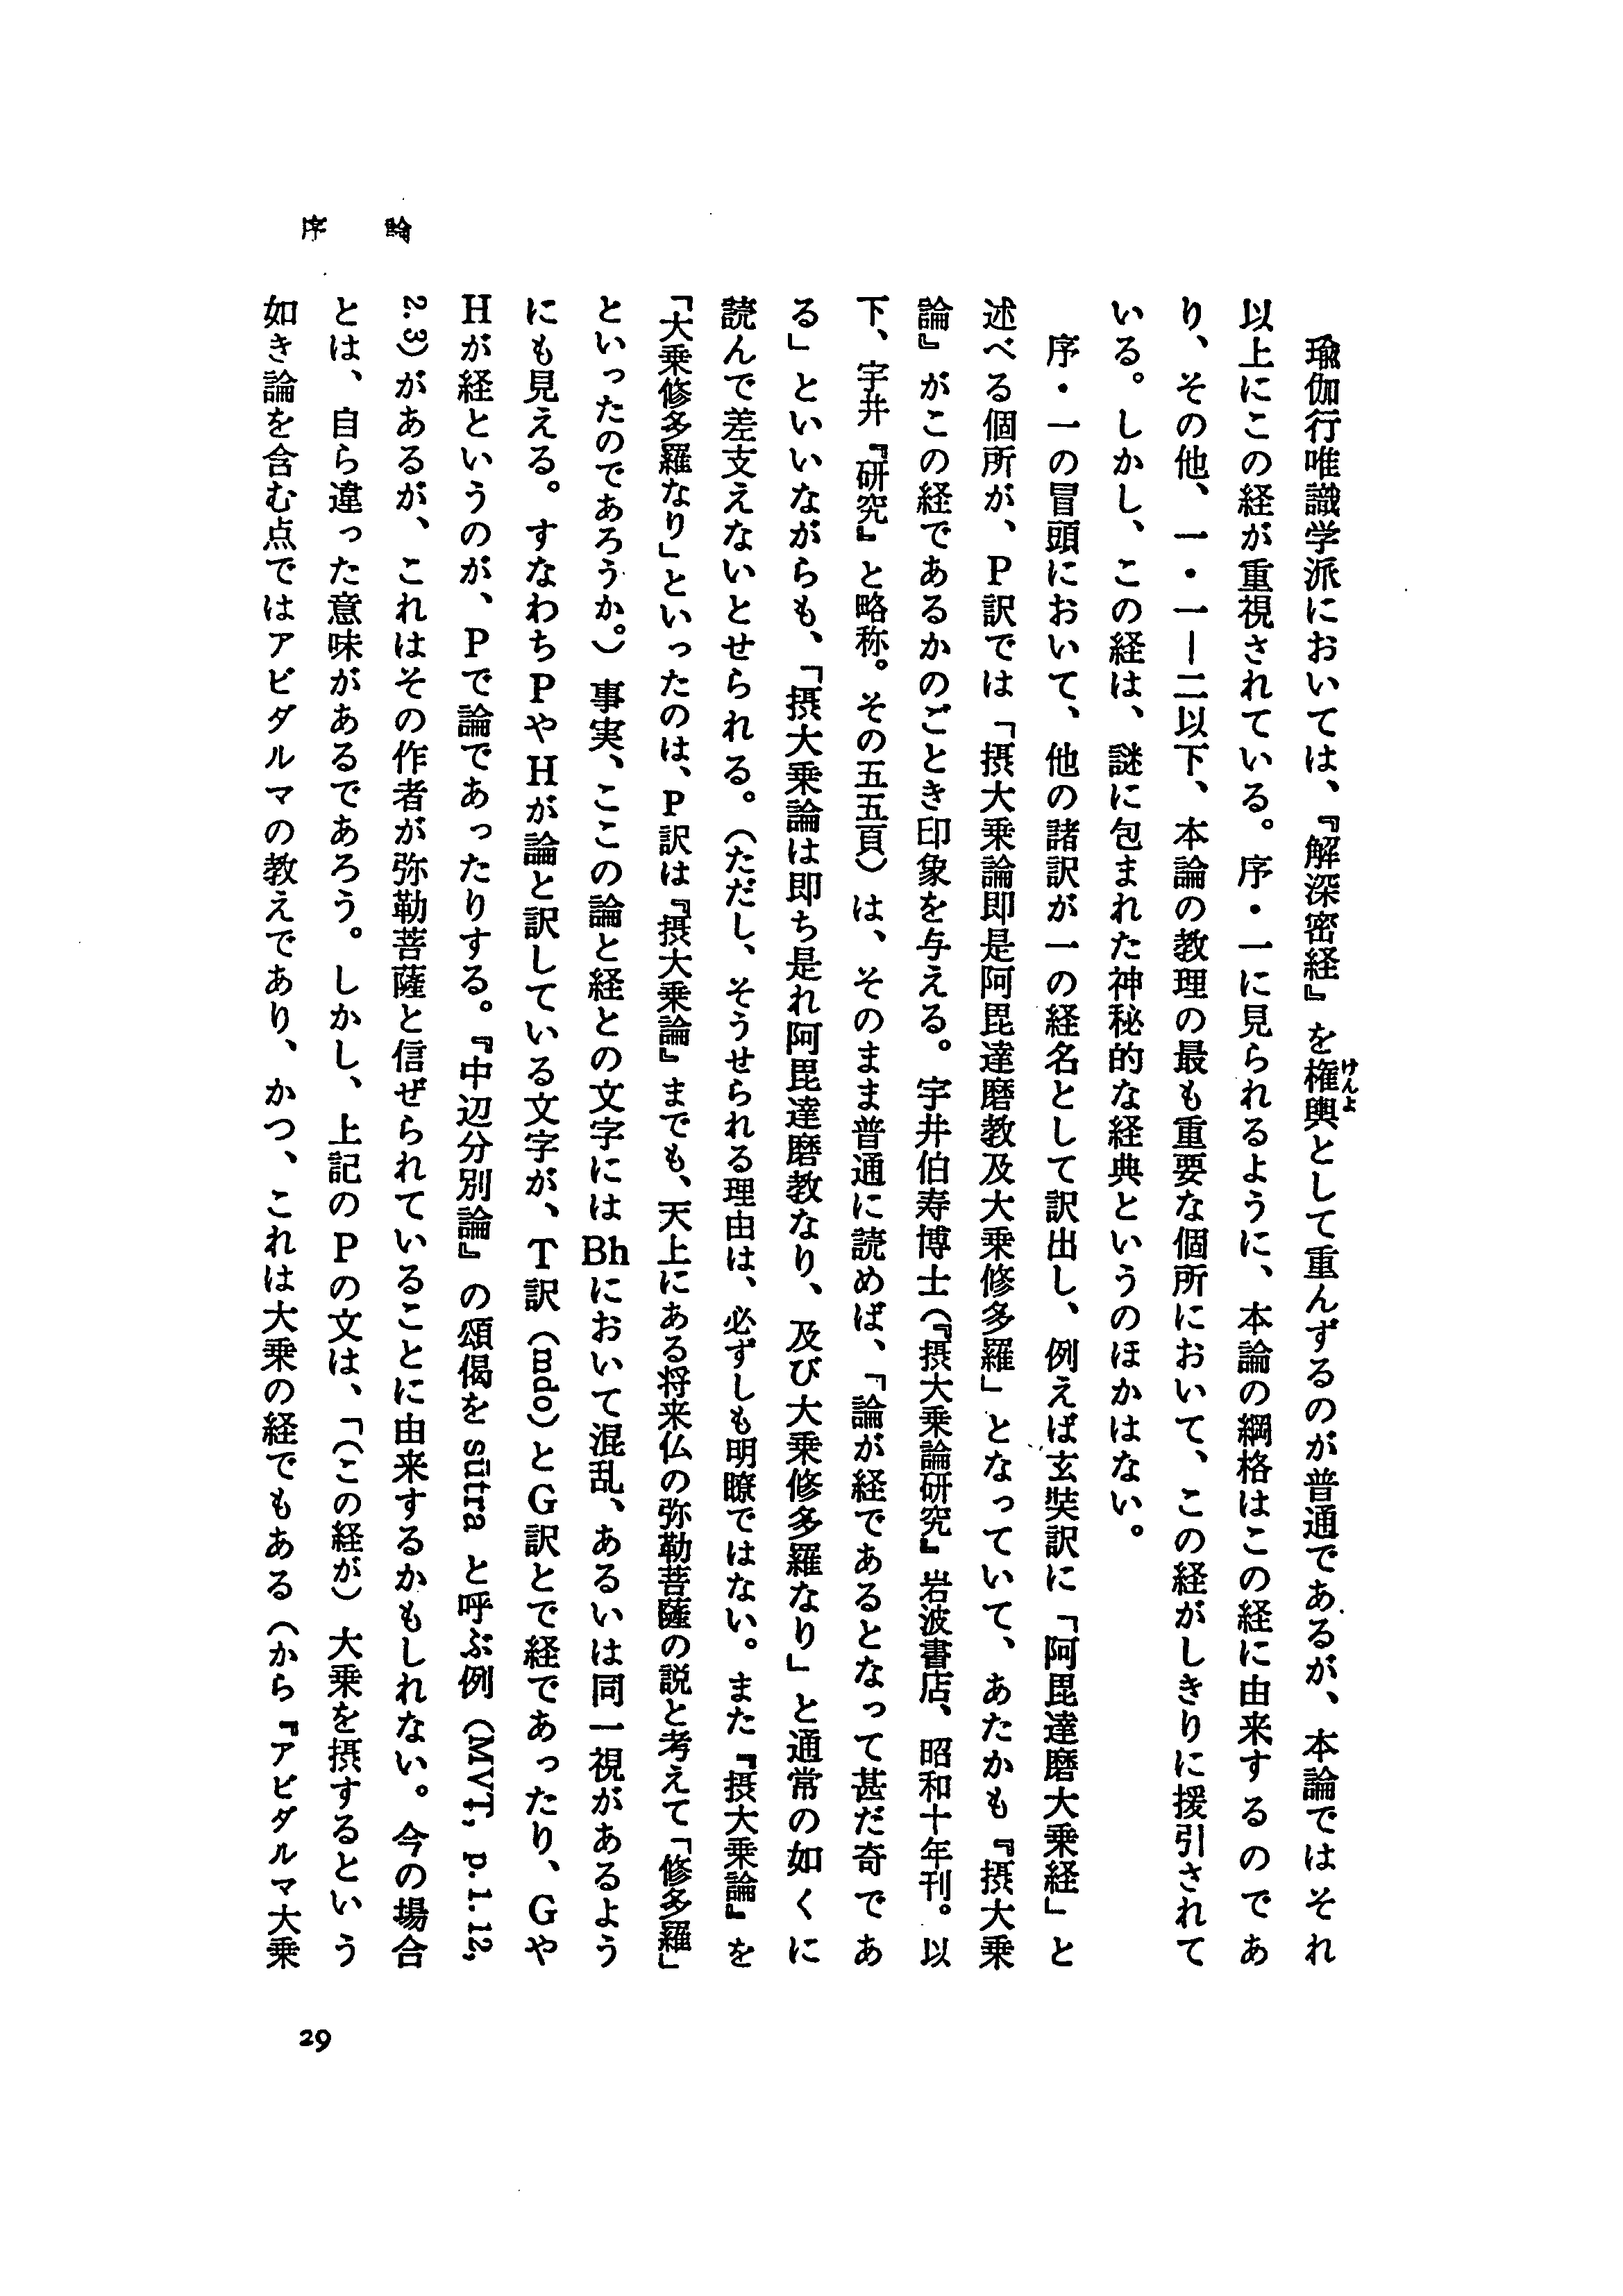 序論
瑜伽行唯識学派においては、『解深密経』を権輿として重んずるのが普通であるが、本論ではそれ
けんよ
以上にこの経が重視されている。序・一に見られるように、本論の綱格はこの経に由来するのであ
り、その他、一・一―二以下、本論の教理の最も重要な個所において、この経がしきりに援引されて
いる。しかし、この経は、謎に包まれた神秘的な経典というのほかはない。
序・一の冒頭において、他の諸訳が一の経名として訳出し、例えば玄奘訳に「阿毘達磨大乗経」と
述べる個所が、P訳では「摂大乗論即是阿毘達磨教及大乗修多羅」となっていて、あたかも『摂大乗
論』がこの経であるかのごとき印象を与える。宇井伯寿博士(『摂大乗論研究』岩波書店、昭和十年刊。以
下、宇井『研究』と略称。その五五頁)は、そのまま普通に読めば、「論が経であるとなって甚だ奇であ
る」といいながらも、「摂大乗論は即ち是れ阿毘達磨教なり、及び大乗修多羅なり」と通常の如くに
読んで差支えないとせられる。(ただし、そうせられる理由は、必ずしも明瞭ではない。また『摂大乗論』を
「大乗修多羅なり」といったのは、P訳は『摂大乗論』までも、天上にある将来仏の弥勒菩薩の説と考えて「修多羅」
といったのであろうか。)事実、ここの論と経との文字にはBhにおいて混乱、あるいは同一視があるよう
にも見える。すなわちPやHが論と訳している文字が、T訳(mdo)とG訳とで経であったり、Gや
Hが経というのが、Pで論であったりする。『中辺分別論』の頌偈をsūtraと呼ぶ例(MVṬ, p.1.12,
2.3)があるが、これはその作者が弥勒菩薩と信ぜられていることに由来するかもしれない。今の場合
とは、自ら違った意味があるであろう。しかし、上記のPの文は、「(この経が)大乗を摂するという
如き論を含む点ではアビダルマの教えであり、かつ、これは大乗の経でもある(から『アビダルマ大乗
29